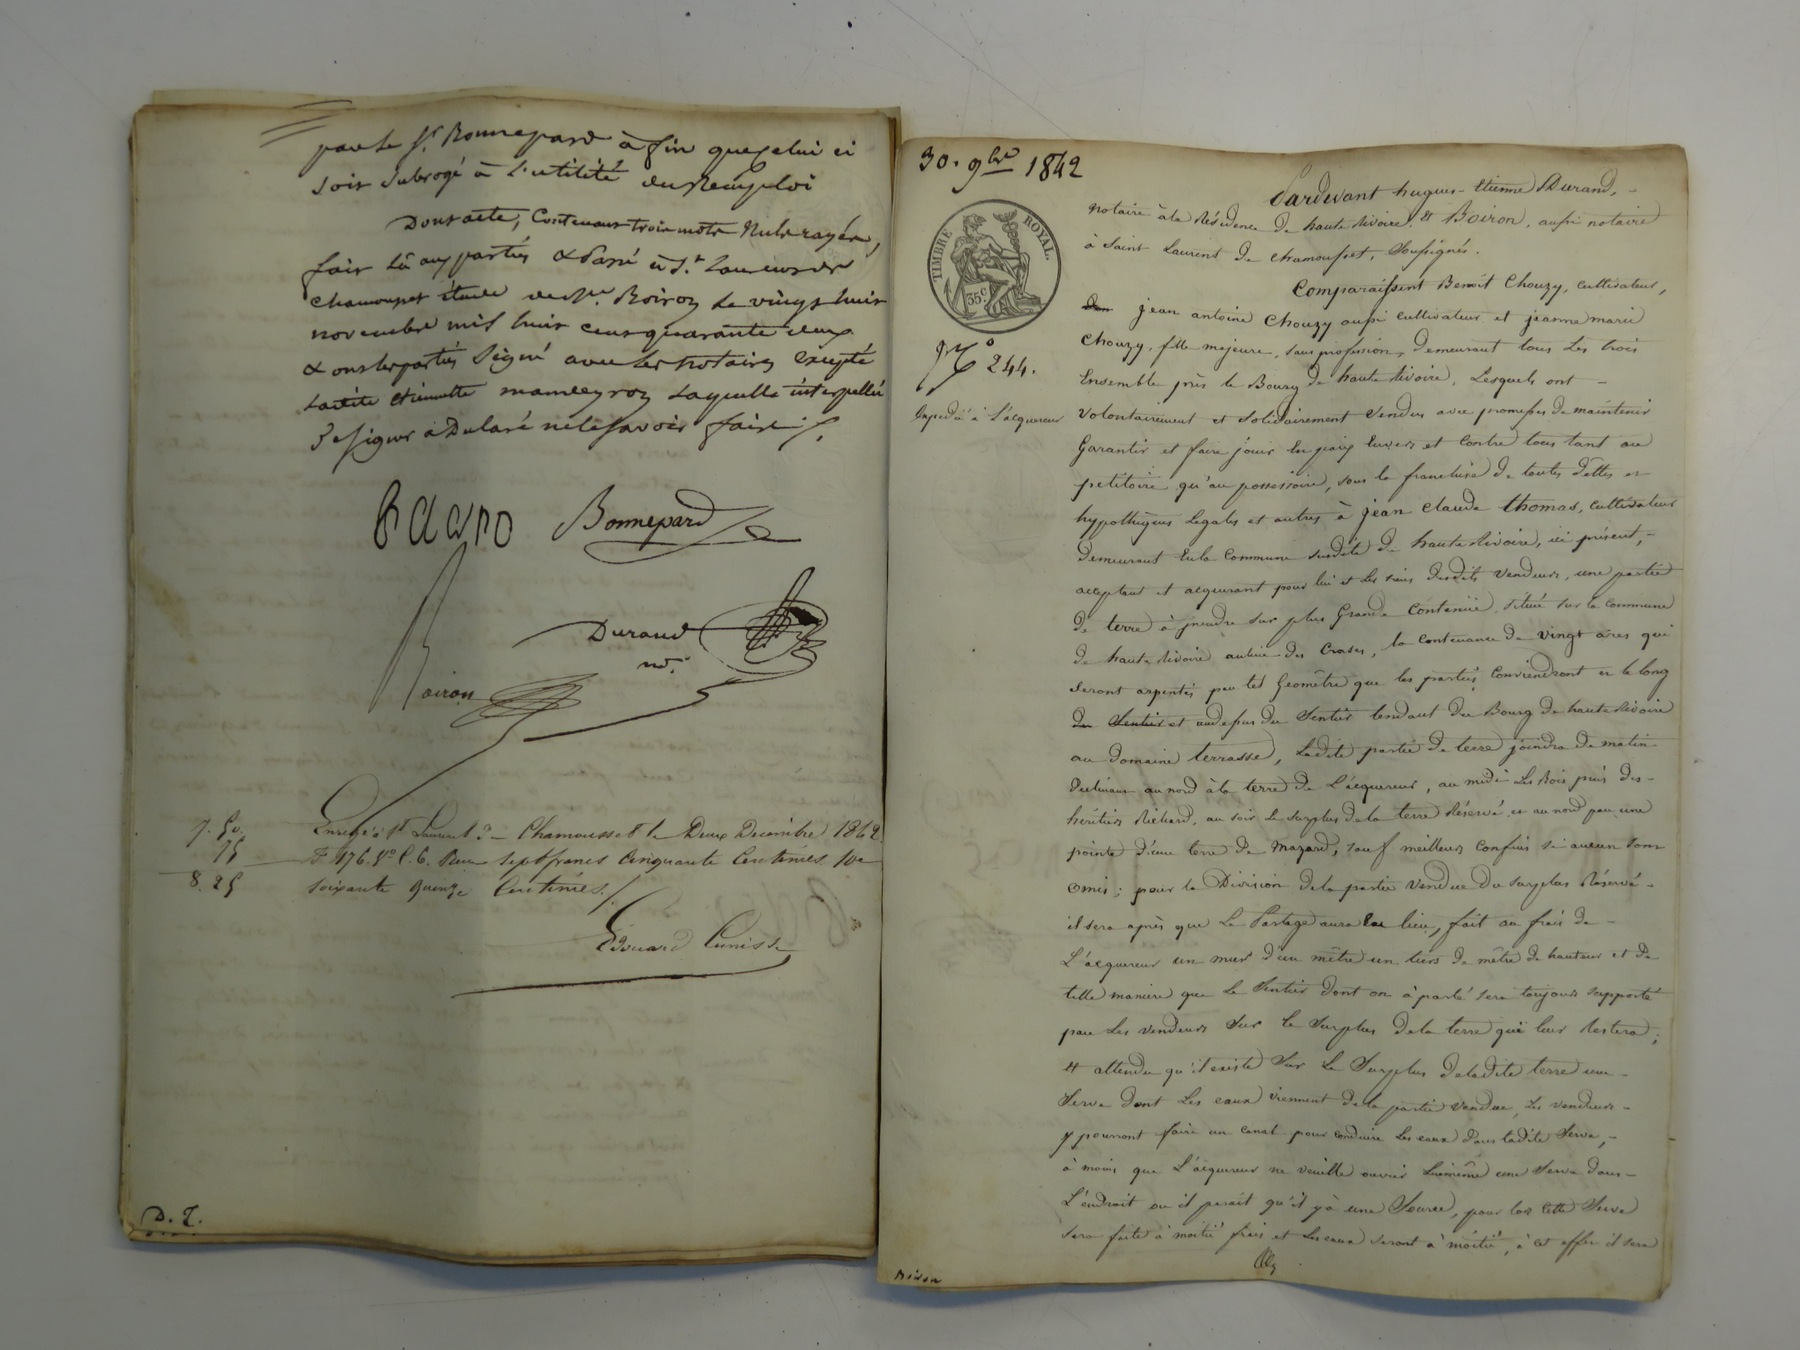 par le Sr. Bonnepard à fin que celui ci
soit subrogé à l'utilité du Remploi
Dont acte, Contenant trois mots Nuls rayés,
fait là aux parties & Passé à St. Laurent de
chamousset étude de Me. Boiron Le vingt huit
novembre mil huit cent quarante deux
& ont les parties Signé avec les notaires excepté
ladite etiennette laquelle interpellée
de signer à Déclaré ne le savoir faire /.
Bonnepard
Durand
nre.
Boiron
7. 50.
75
8. 25
Enregé à St Laurent de Chamousset le Deux Décembre 1842.
Fo 176. Vo C. 6. Reçu sept francs Cinquante Centimes 10e
soixante quinze Centimes /.
Edouard
D. T.
30. 9bre 1842
Pardevant hugues-Etienne Durand, -
notaire à la Résidence de haute Rivoire, & Boiron, aussi notaire
à Saint Laurent de Chamousset, Soussignés.
Comparaissent Benoît Chouzy, cultivateur,
jean antoine Chouzy aussi cultivateur et jeanne marie
Chouzy, fille majeure, sans profession, demeurant tous les trois
Ensemble près le Bourg de haute Rivoire, Lesquels ont -
volontairement et solidairement Vendu avec promesses de maintenir
Garantir et faire jouir En paix Envers et Contre tous tant au
petitoire qu'au possessoire, sous la franchise de toutes dettes et
hypothèques Légales et autres à jean claude thomas, cultivateur
demeurant En la Commune susdite de haute Rivoire, ici présent, -
acceptant et acquérant pour lui et Les siens desdits vendeurs, une partie
de terre à prendre sur plus Grande Contenue, située sur la commune
de haute Rivoire au lieu des Crases, la contenance de vingt ares qui
Seront arpentés par tel Géomètre que les parties Conviendront et le long
du Sentier et au dessus du Sentier tendant du Bourg de haute Rivoire
au domaine terrasse, Ladite partie de terre joindra de matin
déclinant au nord à la terre de L'acquereur, au midi Les Bois pins des -
héritiers Richard, au soir Le Surplus de la terre Réservé, et au nord par une
pointe d'une terre de Mazard, sauf meilleurs Confins si aucun sont
omis; pour la Division de la partie Vendue du surplus Réservé -
il sera après que Le Partage aura eu lieu, fait au frais de -
L'acquereur un mur d'un mètre un tiers de mètre de hauteur et de
telle manière que Le Sentier dont on à parlé sera toujours supporté
par Les vendeurs Sur le Surplus de la terre qui leur Restera;
et attendu qu'il existe Sur Le Surplus de ladite terre une -
Serve dont Les eaux viennent de la partie vendue, Les vendeurs -
y pourront faire un canal pour conduire Les eaux dans ladite Serve, -
à moins que L'acquereur ne veuille ouvrir Luimême une Serve dans -
L'endroit ou il parait qu'il y à une Source, pour lors cette Serve
sera faite à moitié frais et Les eaux seront à moitié, à cet effet il sera
TIMBRE ROYAL.
35 c.
No 244.
Expedié à L'acquereur
Boiron